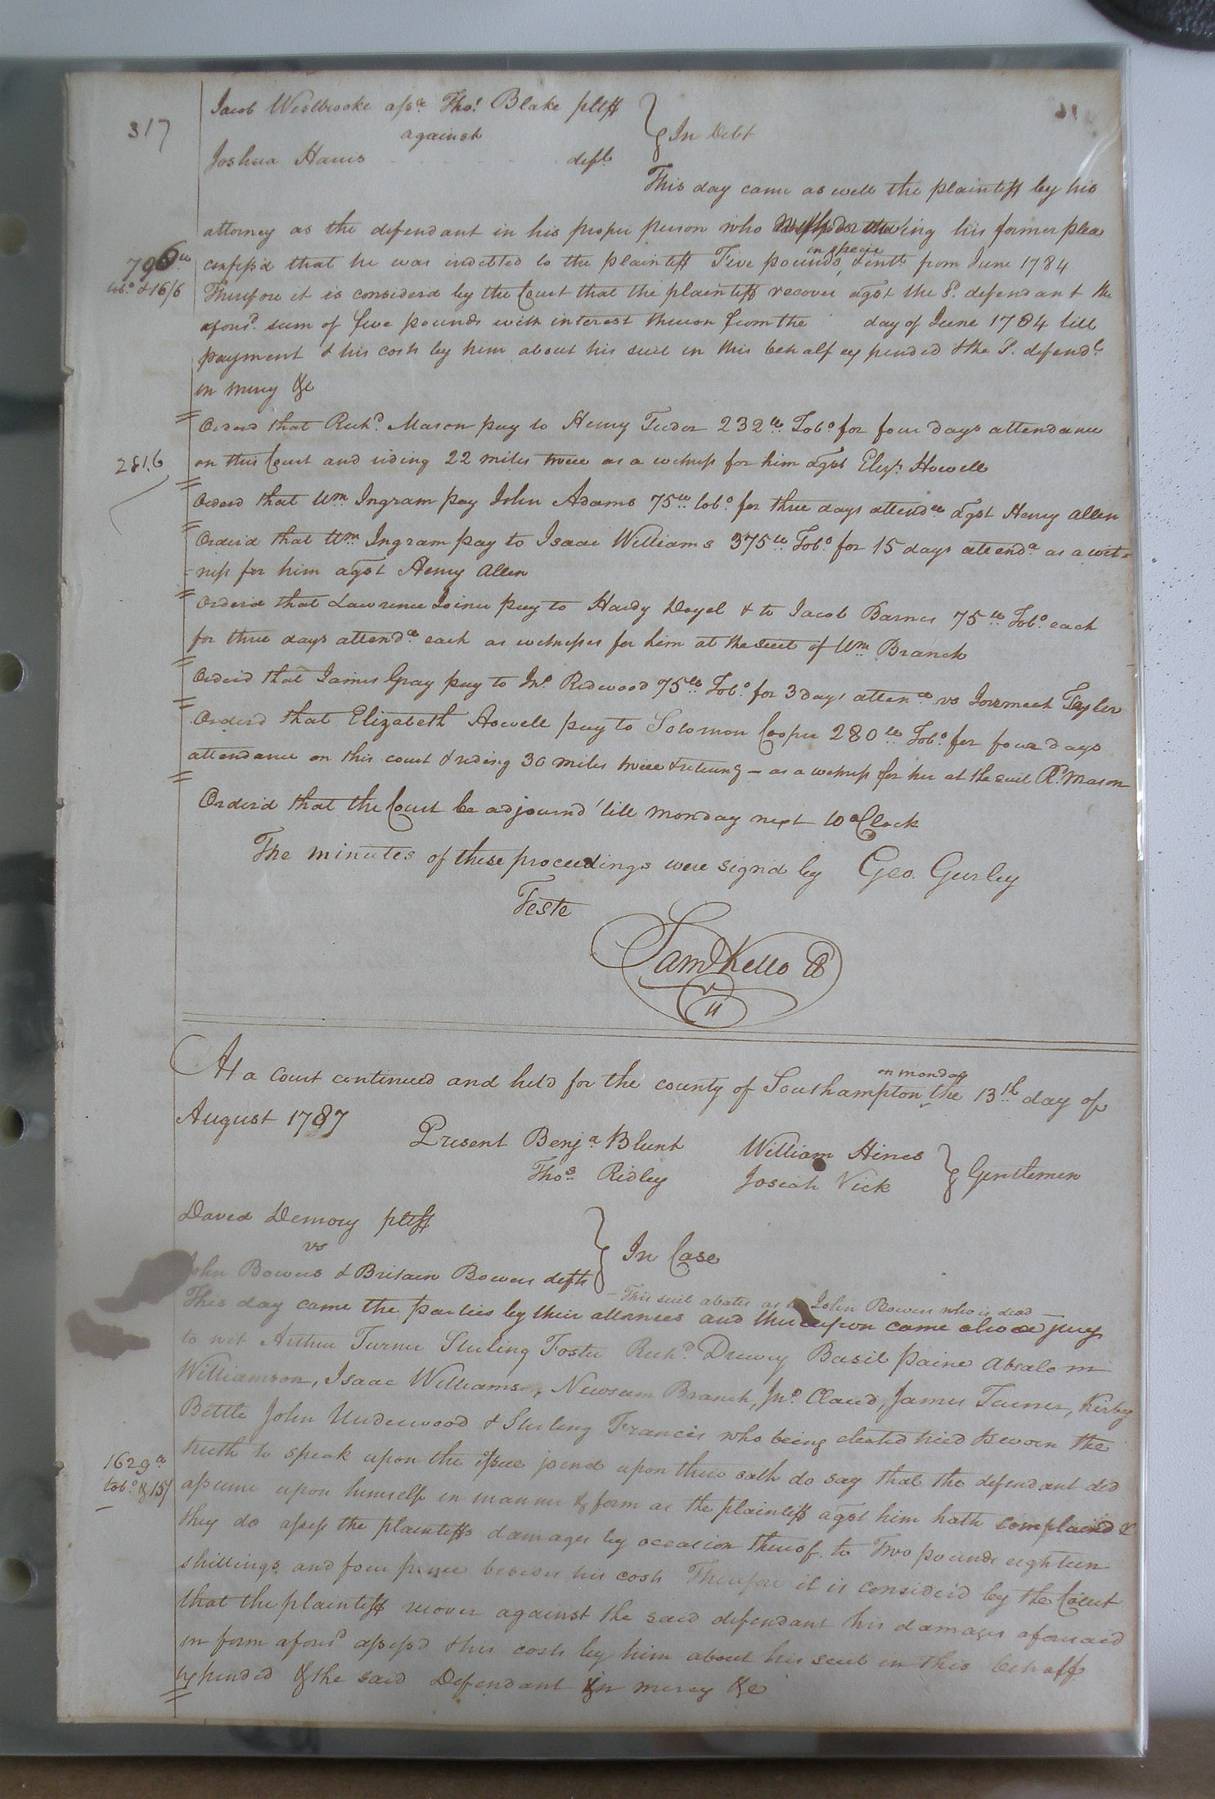 317
Jacob Westbrooke assee Thos. Blake pltff
against
Joshua Harris deft.
In Debt
This day came as well the plaintiff by his
attorney as the defendant in his proper person who his former plea
confess'd that he was indebted to the plaintiff Five pounds in specie & intt. from June 1784
Tobo. & 16/6
Therefore it is considerd by the Court that the plaintiff recover agst the sd. defendant the
aforsd. sum of five pounds with interest thereon from the day of June 1784 till
payment & his costs by him about his suit in this behalf expended & the sd. defendt.
in mercy &c
Orderd that Richd. Mason pay to Henry Tudor 232lb Tobo. for four days attendance
on this Court and riding 22 miles twice as a witness for him agst Elizh. Howell
281.6
Orderd that Wm. Ingram pay John Adams 75lb tobo. for three days attendce agst Henry Allen
Orderd that Wm. Ingram pay to Isaac Williams 375lb Tobo. for 15 days attenda. as a wit-
-ness for him agst Henry Allen
Orderd that Lawrence Joiner pay to Hardy Doyel & to Jacob Barnes 75lb Tobo. each
for three days attendce each as witnesses for him at the suit of Wm. Branch
Orderd that James Gray pay to Jno. Redwood 75lb Tobo. for 3 days attence vs Taylor
Orderd that Elizabeth Howell pay to Solomon Cooper 280lb Tobo. for four days
attendance on this court & riding 30 miles twice & returng - as a witness for her at the suit R. Mason
Orderd that the Court be adjournd 'till monday next 10 oClock
The minutes of these proceedings were signd by Geo. Gurley
Teste
Saml Kello CC
At a Court continued and held for the county of Southampton on monday the 13th day of
August 1787
Present Benja. Blunt William Hines
Thos. Ridley Josiah Vick
Gentlemen
David Demory pltff
vs
John Bowers & Britain Bowers defts
In Case
- This suit abates as to John Bowers who is dead -
This day came the parties by their attornies and thereupon came also a jury
to wit Arthur Turner Sterling Foster Richd. Drewry Basil Paine Absalom
Williamson, Isaac Williams, Newsum Branch, Jno. Claud, James Turner, Kirby
Bettle John Underwood & Sterling Francis who being elected tried & sworn the
truth to speak upon the issue joind upon their oath do say that the defendant did
1629a
tobo. & 15/
assume upon himself in manner & form as the plaintiff agst him hath complaind &
they do assess the plaintiffs damages by occasion thereof to Two pounds eighteen
shillings and four pence besides his costs Therefore it is considerd by the Court
that the plaintiff recover against the said defendant his damages aforesaid
in form aforsd. assessd & his costs by him about his suit in this behalf
expended & the said Defendant in mercy &c